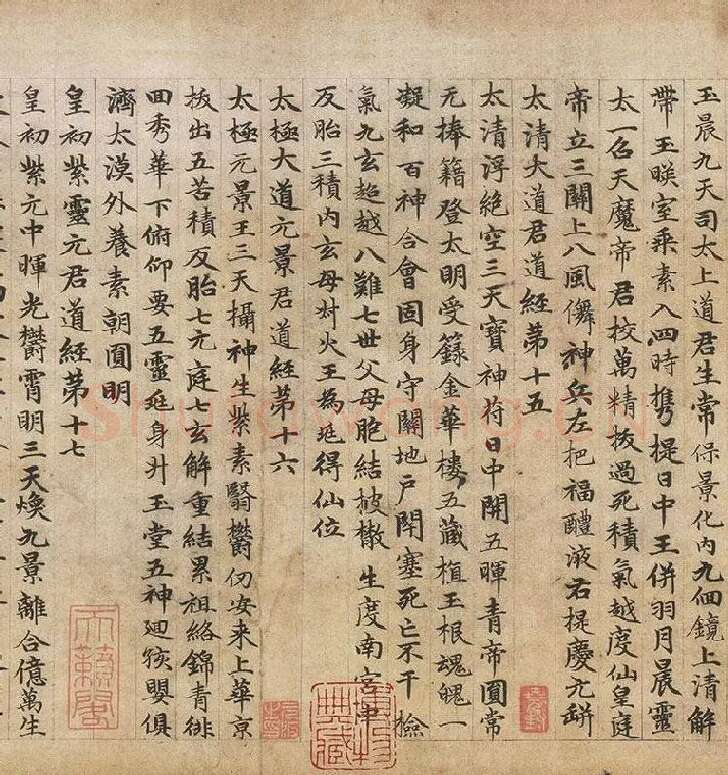 玉晨九天司太上道君生常保景化内九回鏡上清解
帶玉映室乘素入四時携提日中王併羽月晨靈
太一名天魔帝君校萬精拔過死積氣越度仙皇庭
帝立三關上八風儛神兵左把福醴液右提慶元缾
太清大道君道經第十五
太清浮絶空三天寶神符日中開五暉青帝圓常
元捧籍登太明受籙金華樓五藏植玉根魂魄一
凝和百神合會固身守關地户閇塞死亡不干撿
氣九玄超越八難七世父母胞結披散生度南宫
反胎三積内玄母對火王為延得仙位
太極大道元景君道經第十六
太極元景王三天攝神生紫素翳欝仞安来上華京
拔出五苦積反胎七元庭七玄解重結累祖絡錦青緋
回秀華下俯仰要五靈延身升玉堂五神廻孩嬰俱
濟太漠外養素朝圓明
皇初紫靈元君道經第十七
皇初紫元中暉光欝霄明三天煥九景離合億萬生
典藏